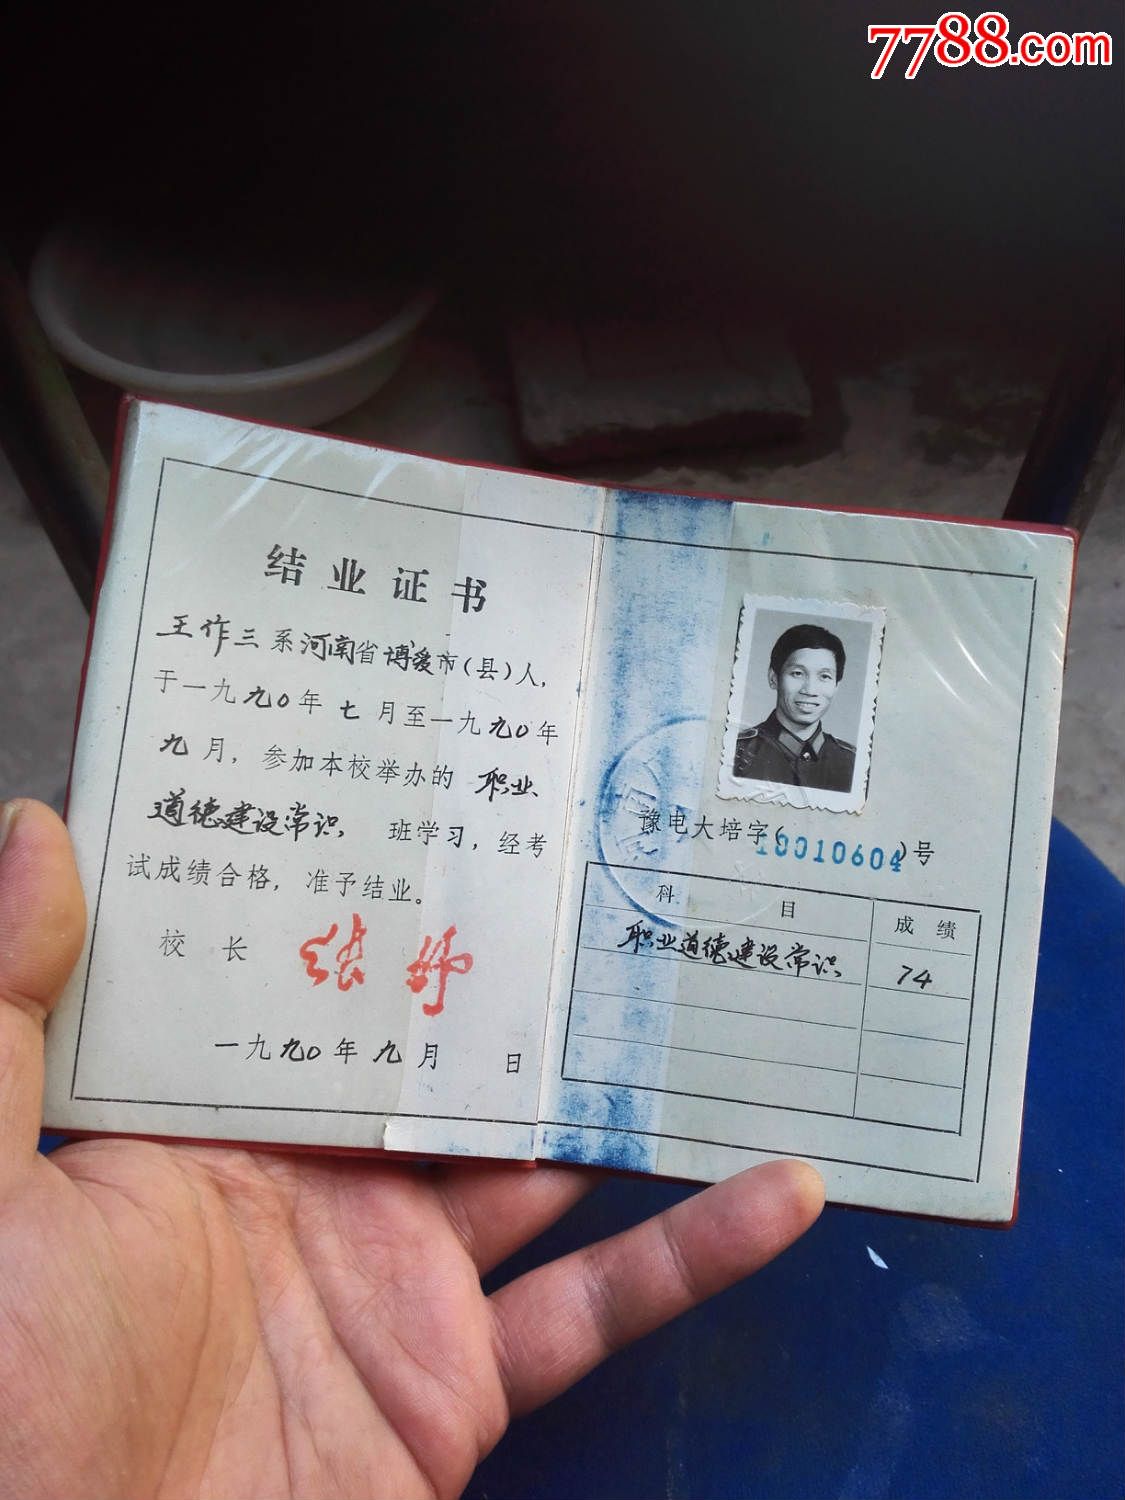 7788.com
结业证书
王作三系河南省博爱市(县)人,
于一九九〇年七月至一九九〇年
九月,参加本校举办的职业
道德建设常识,班学习,经考
试成绩合格,准予结业。
校长
一九九〇年九月 日
豫电大培字(10010604)号
科目 成绩
职业道德建设常识 74